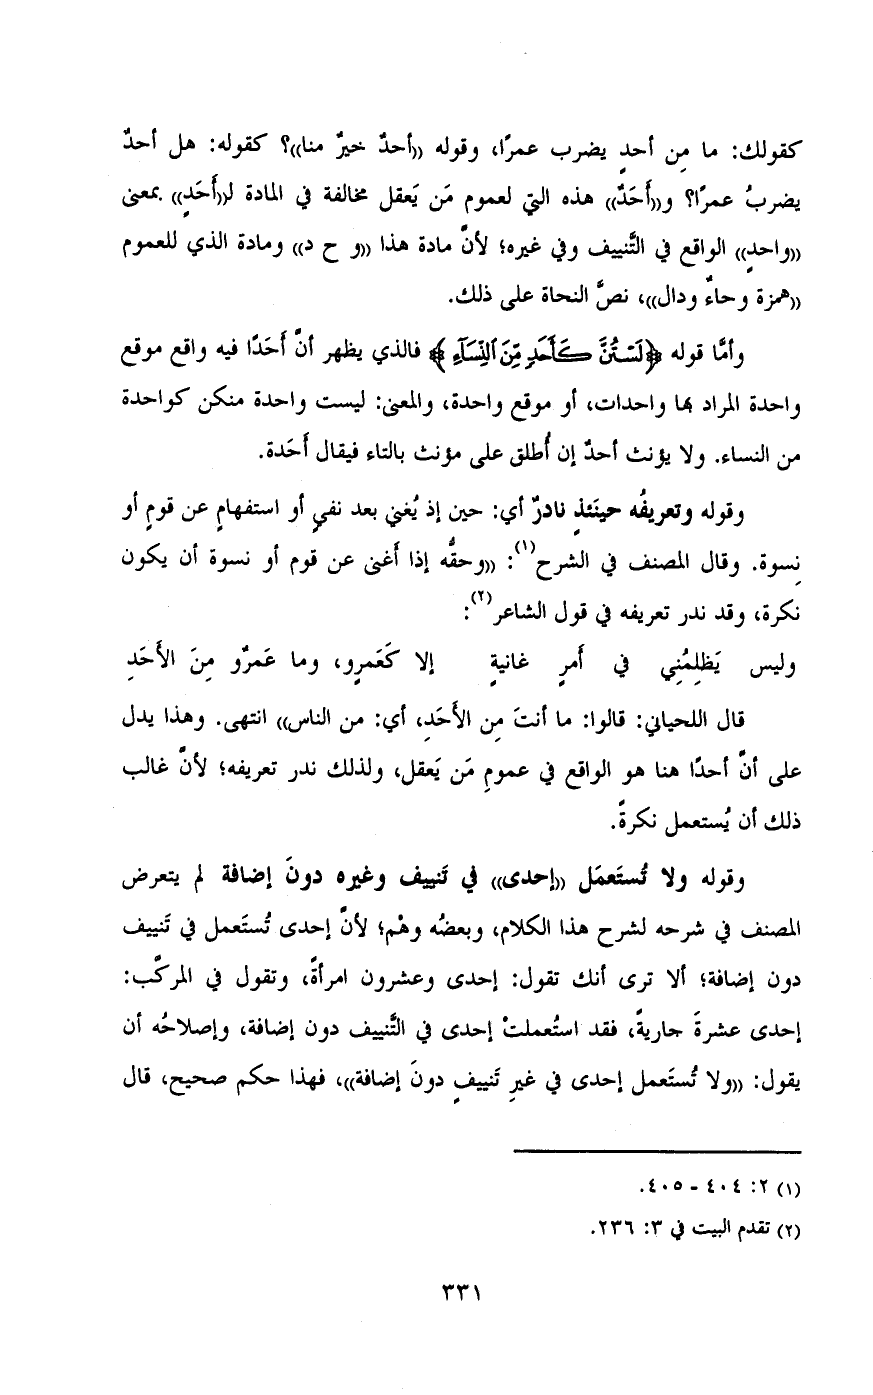 كقولك: ما مِن أحدٍ يضرب عمرًا، وقوله «أحدٌ خيرٌ منا»؟ كقوله: هل أحدٌ
يضربُ عمرًا؟ و«أَحَدٌ» هذه التي لعموم مَن يَعقل مخالفة في المادة لـ«أَحَدٍ» بمعنى
«واحدٍ» الواقع في التَّنييف وفي غيره؛ لأنَّ مادة هذا «و ح د» ومادة الذي للعموم
«همزة وحاءٌ ودال»، نصَّ النحاة على ذلك.
وأمَّا قوله ﴿لَسْتُنَّ كَأَحَدٍ مِّنَ ٱلنِّسَآءِ﴾ فالذي يظهر أنَّ أَحَدًا فيه واقع موقع
واحدة المراد بها واحدات، أو موقع واحدة، والمعنى: ليست واحدة منكن كواحدة
من النساء. ولا يؤنث أحدٌ إن أُطلق على مؤنث بالتاء فيقال أَحَدة.
وقوله وتعريفُه حينَئذٍ نادرٌ أي: حين إذ يُغني بعد نفيٍ أو استفهامٍ عن قومٍ أو
نِسوة. وقال المصنف في الشرح(١): «وحقُّه إذا أَغنى عن قوم أو نسوة أن يكون
نكرة، وقد ندر تعريفه في قول الشاعر(٢):
وليس يَظلِمُنِي في أَمرِ غانيةٍ إلا كَعَمرٍو، وما عَمرٌو مِنَ الأَحَدِ
قال اللحياني: قالوا: ما أنتَ مِن الأَحَدِ، أي: من الناس» انتهى. وهذا يدل
على أنَّ أحدًا هنا هو الواقع في عمومِ مَن يَعقل، ولذلك ندر تعريفه؛ لأنَّ غالب
ذلك أن يُستعمل نكرةً.
وقوله ولا تُستَعمَل «إحدى» في تَنييف وغيره دونَ إضافة لم يتعرض
المصنف في شرحه لشرح هذا الكلام، وبعضُه وهْم؛ لأنَّ إحدى تُستَعمل في تَنييف
دون إضافة؛ ألا ترى أنك تقول: إحدى وعشرون امرأةً، وتقول في المركَّب:
إحدى عشرةَ جاريةً، فقد استُعملتْ إحدى في التَّنييف دون إضافة، وإصلاحُه أن
يقول: «ولا تُستَعمل إحدى في غيرِ تَنييفٍ دونَ إضافة»، فهذا حكم صحيح، قال
(١) ٢: ٤٠٤ - ٤٠٥.
(٢) تقدم البيت في ٣: ٢٣٦.
٣٣١